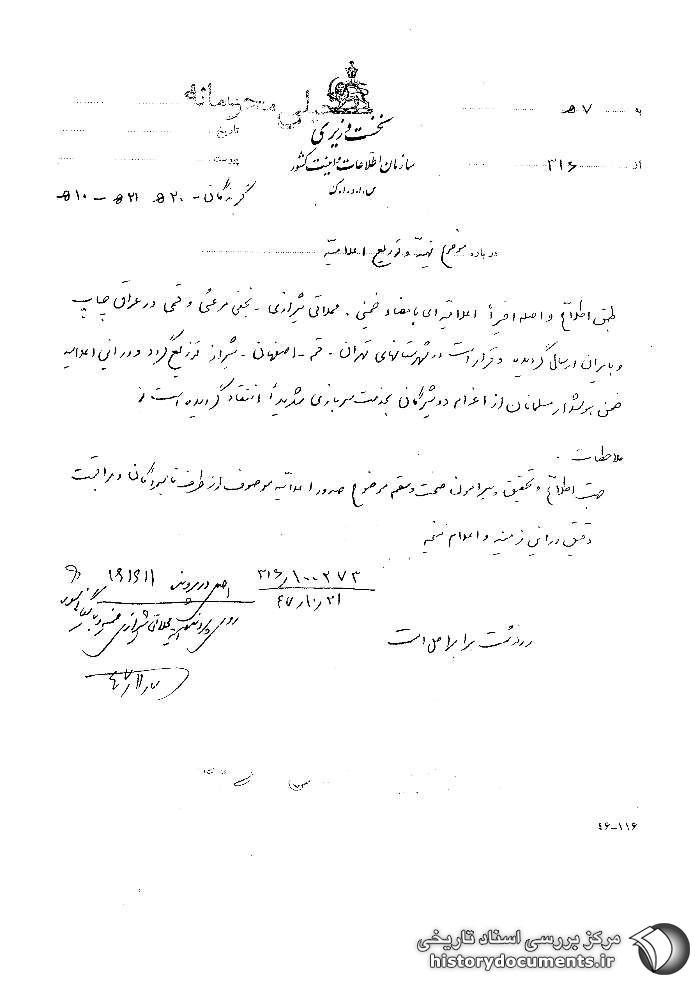 خیلی محرمانه
نخست وزیری
سازمان اطلاعات و امنیت کشور
س.ا.و.ا.ک
به ۷ ه
از ۳۱۶
تاریخ
پیوست
گیرندگان - ۲۰ ه ۲۱ ه - ۱۰ ه
درباره موضوع تهیه و توزیع اعلامیه
طبق اطلاع واصله اخیراً اعلامیه‌ای بامضاء خمینی، محلاتی شیرازی - نجفی مرعشی و قمی در عراق چاپ
و بایران ارسال گردیده و قرار است در شهرستانهای تهران - قم - اصفهان - شیراز توزیع گردد در این اعلامیه
ضمن هوشدار مسلمانان از اعزام دوشیزگان بخدمت سربازی شدیداً انتقاد گردیده است
ملاحظات
جهت اطلاع و تحقیق پیرامون صحت و سقم موضوع صدور اعلامیه موصوف از طرف نامبردگان و مراقبت
دقیق در این زمینه و اعلام نتیجه
۳۱۶/۱۰۰۲۷۳
۴۷/۱۰/۲۱
اصل در پرونده ۱۹۱۹۱۱
رونوشت برابر اصل است
۴۷/۱۱/۷
۴۶-۱۱۶
مرکز بررسی اسناد تاریخی
historydocuments.ir